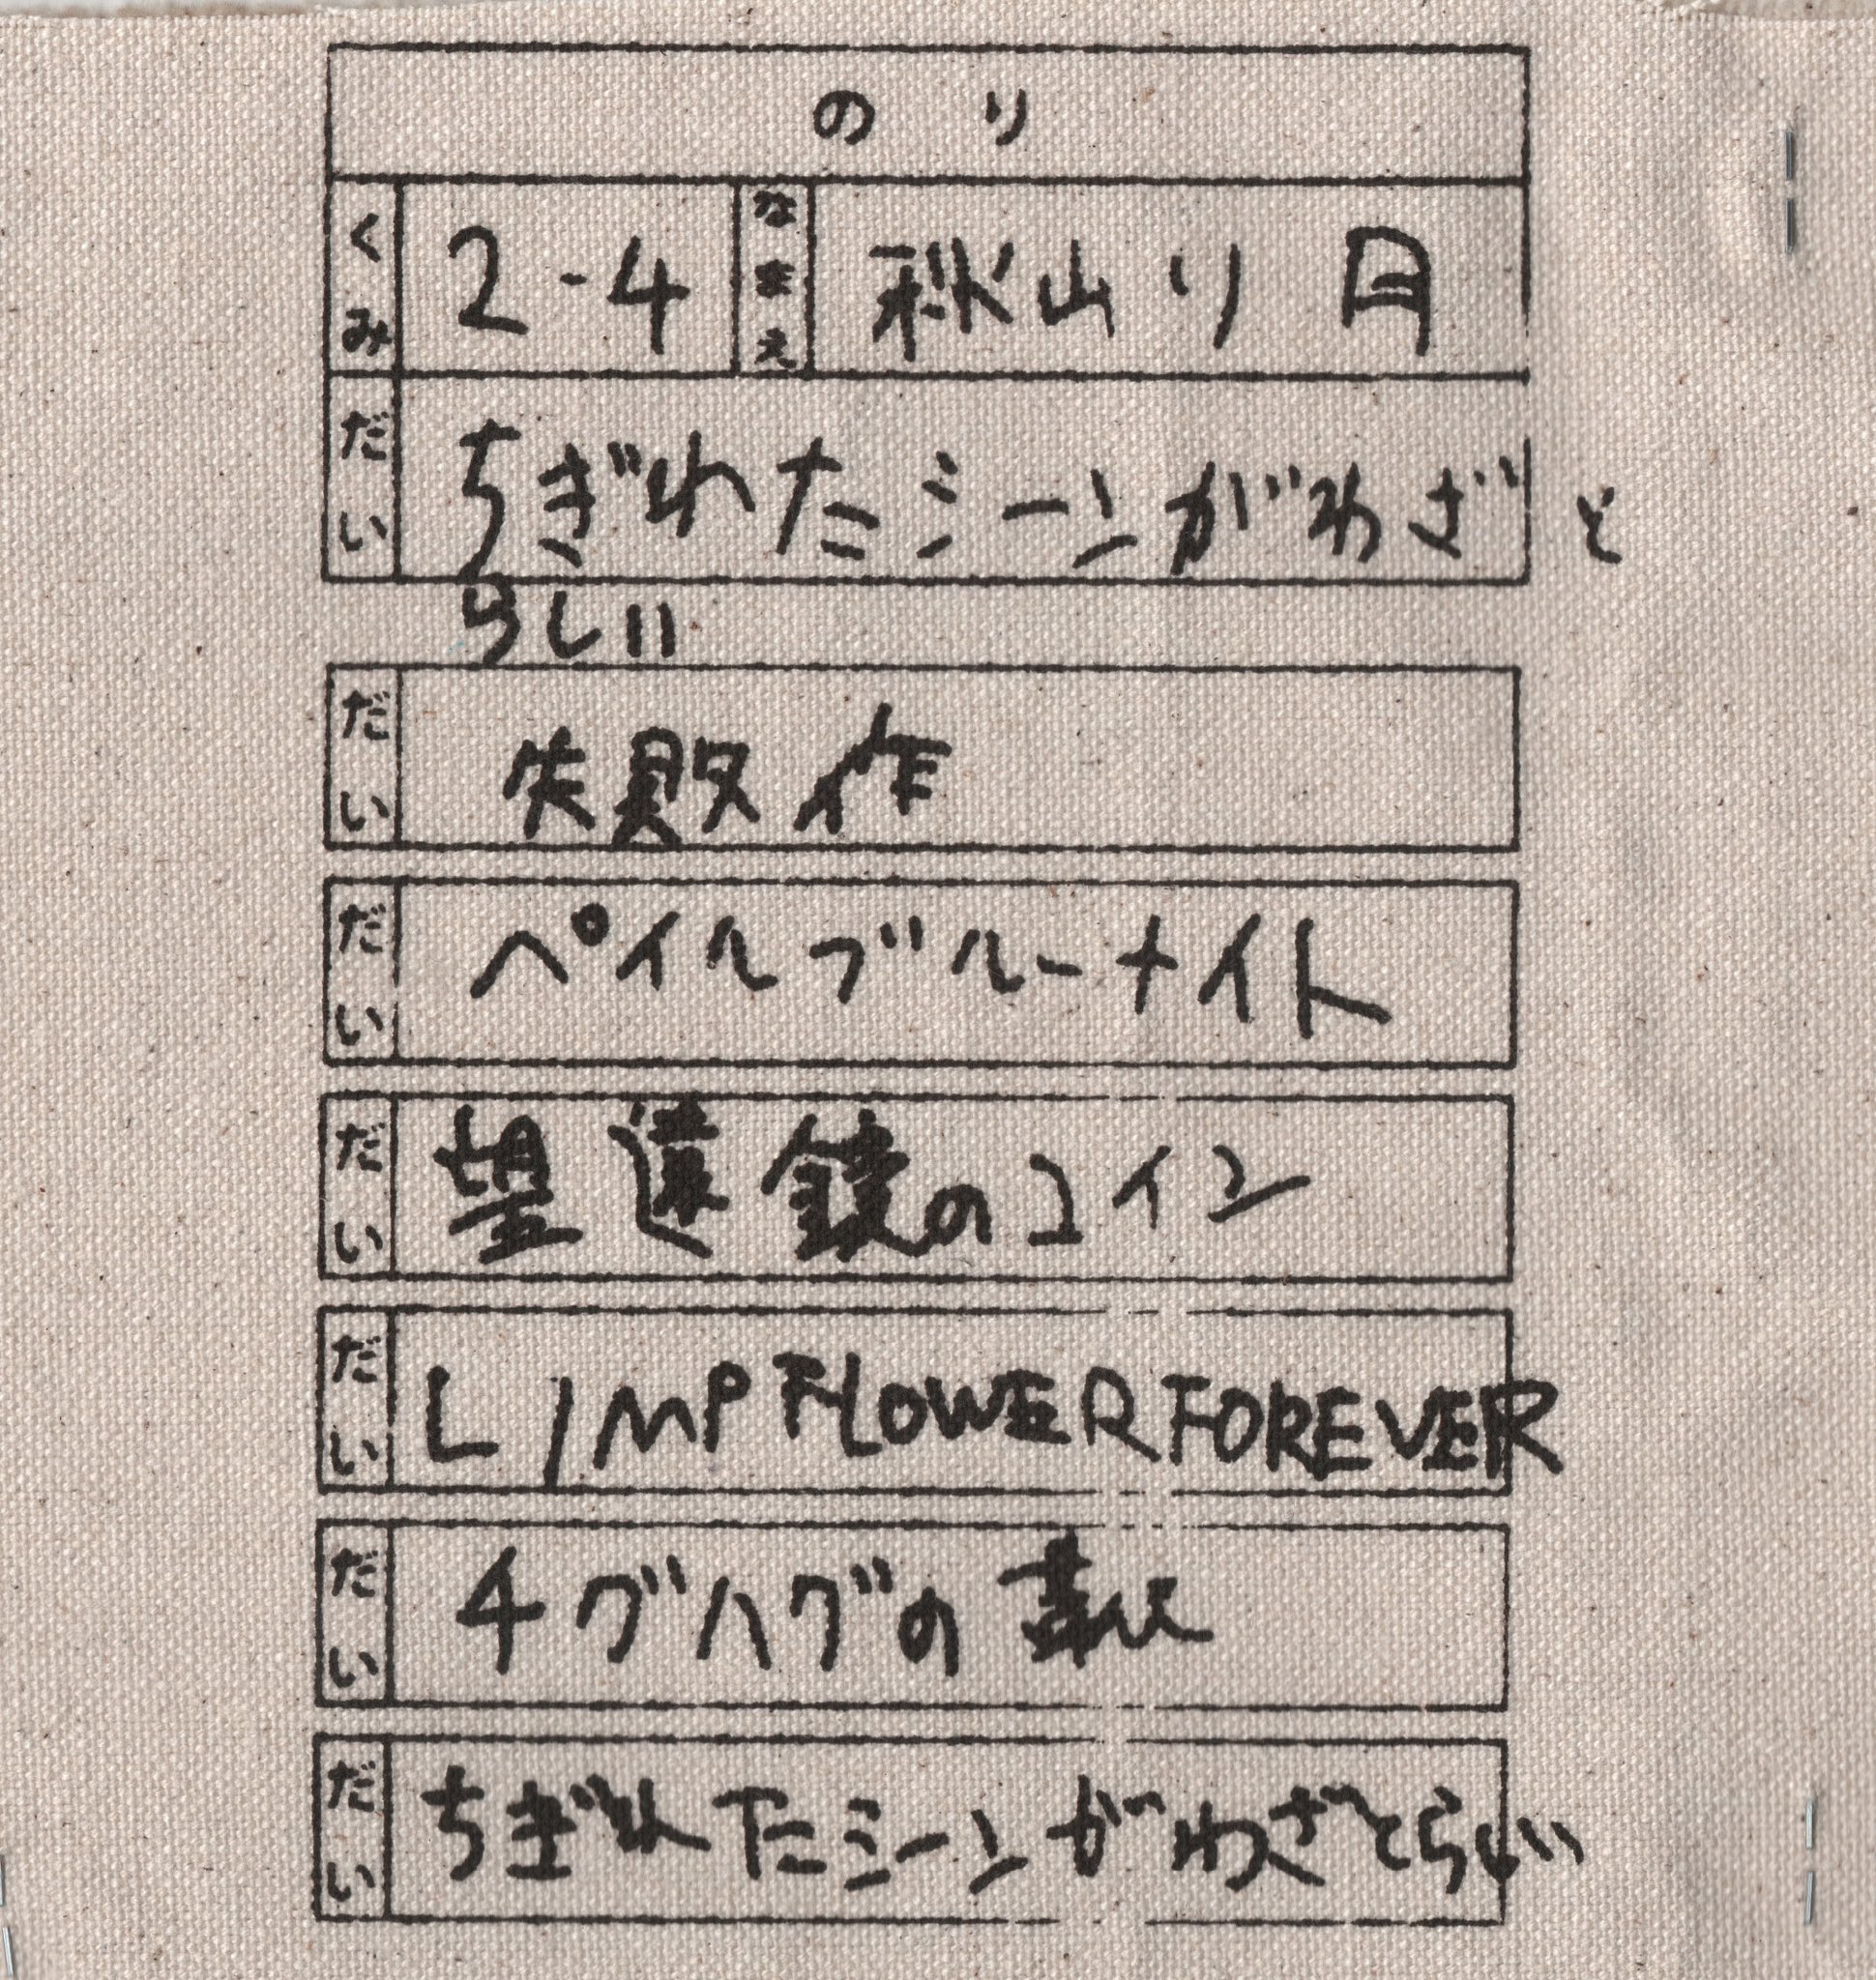 のり
くみ 2-4 なまえ 秋山り 日
だい ちぎれたシーンがわざと
らしい
だい 失敗作
だい ペイルブルーナイト
だい 望遠鏡のコイン
だい LIMP FLOWER FOREVER
だい チグハグの
だい ちぎれたシーンがわざとらしい